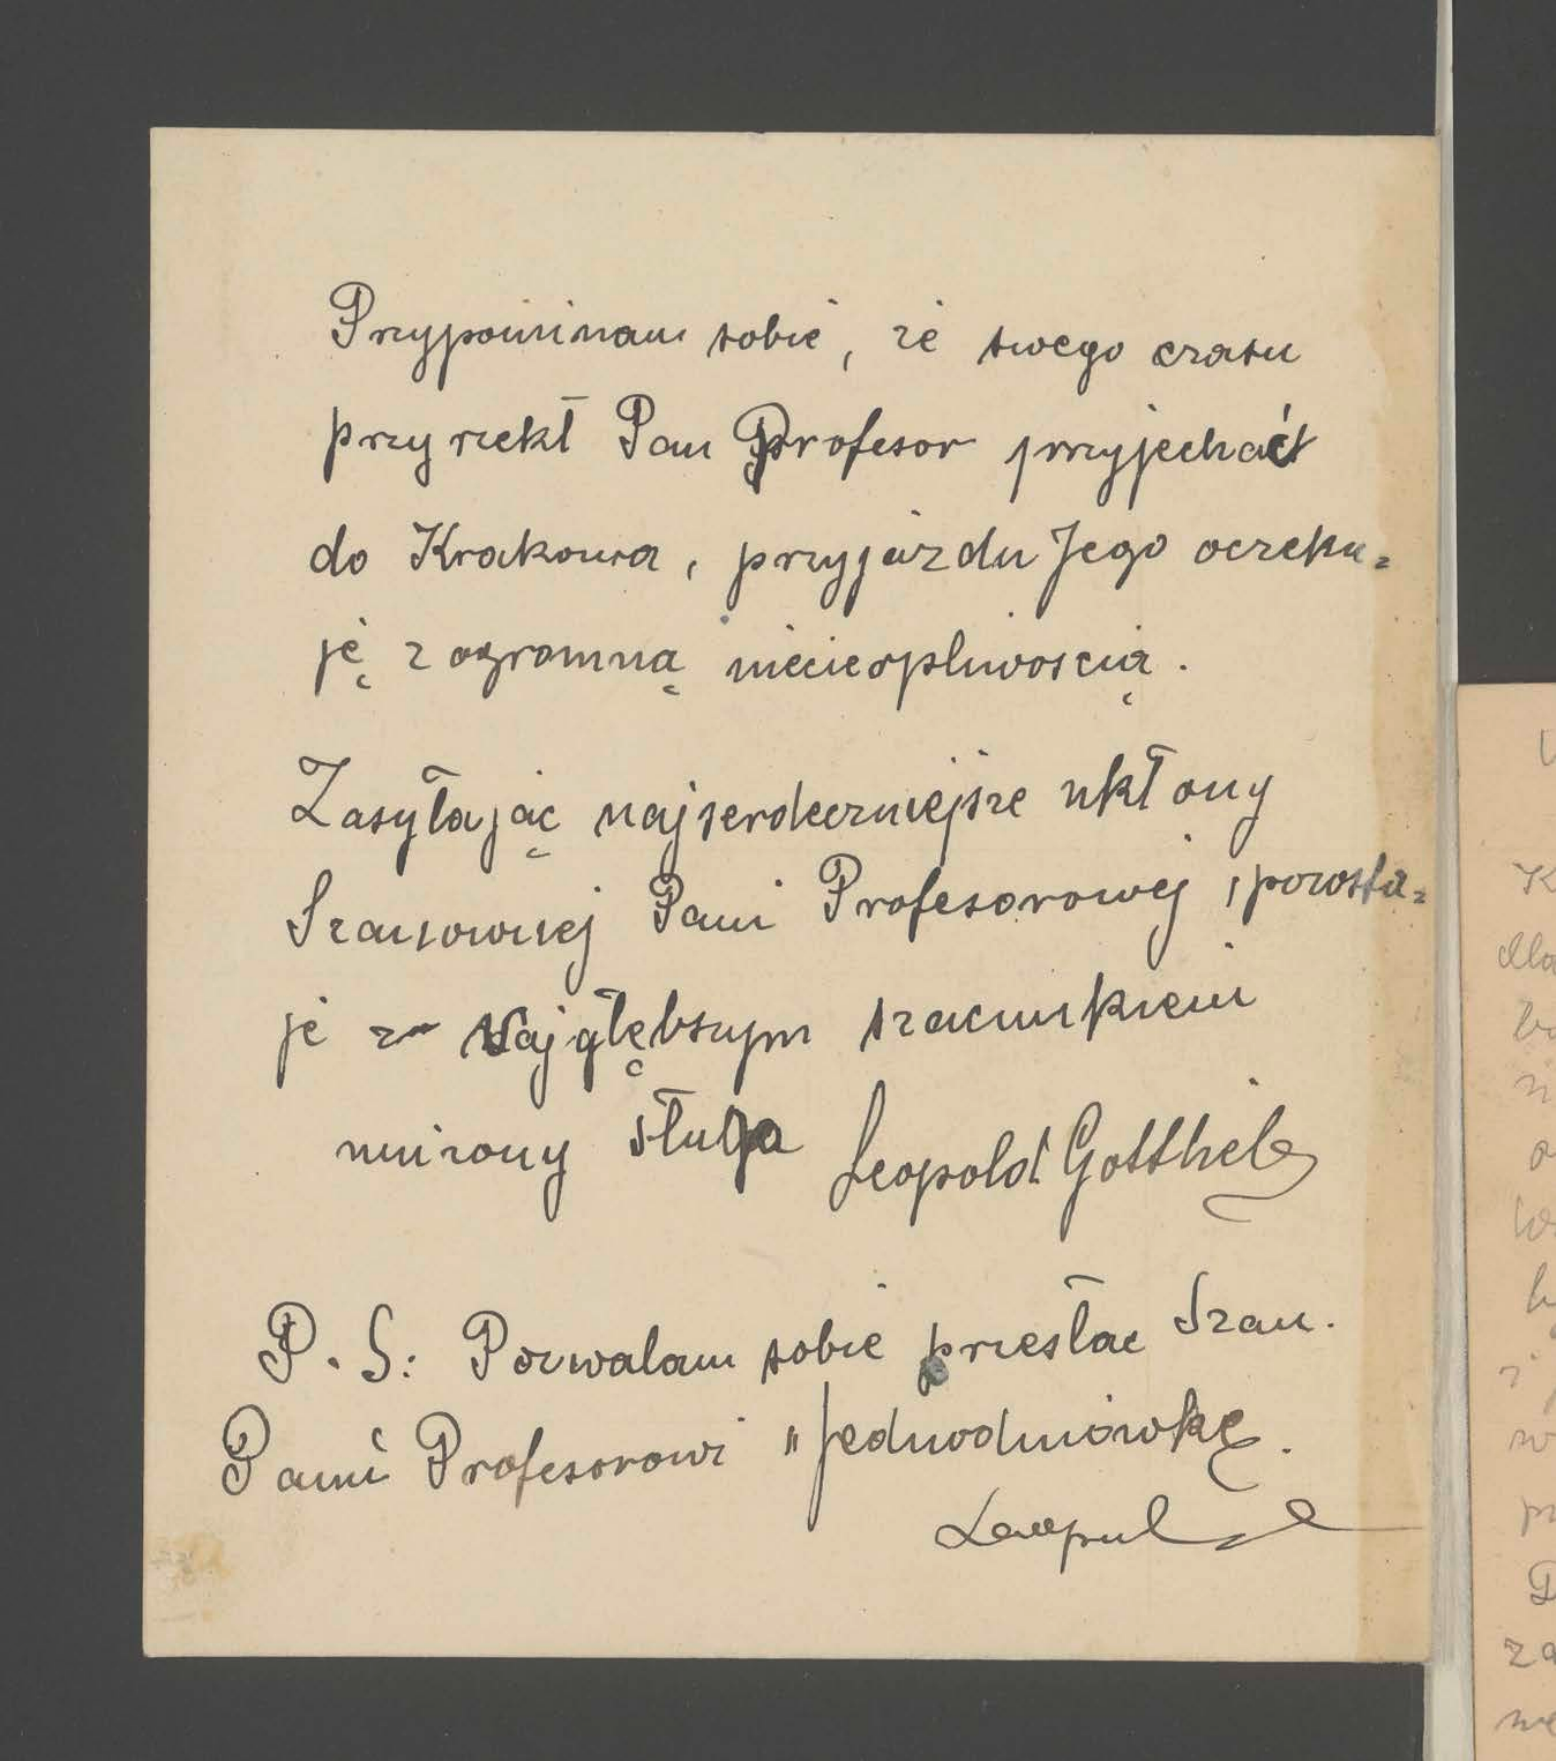 Przypominam sobie, że swego czasu
przyrzekł Pan Profesor przyjechać
do Krakowa, przyjazdu Jego oczeku=
ję z ogromną niecierpliwoscią.
Zasyłając najserdeczniejsze ukłony
Szanownej Pani Profesorowej, pozosta=
ję z najgłębszym szacunkiem
uniżony sługa Leopold Gottlieb
P. S: Pozwalam sobie przesłac Szan.
Panu Profesorowi "Jednodniówkę.